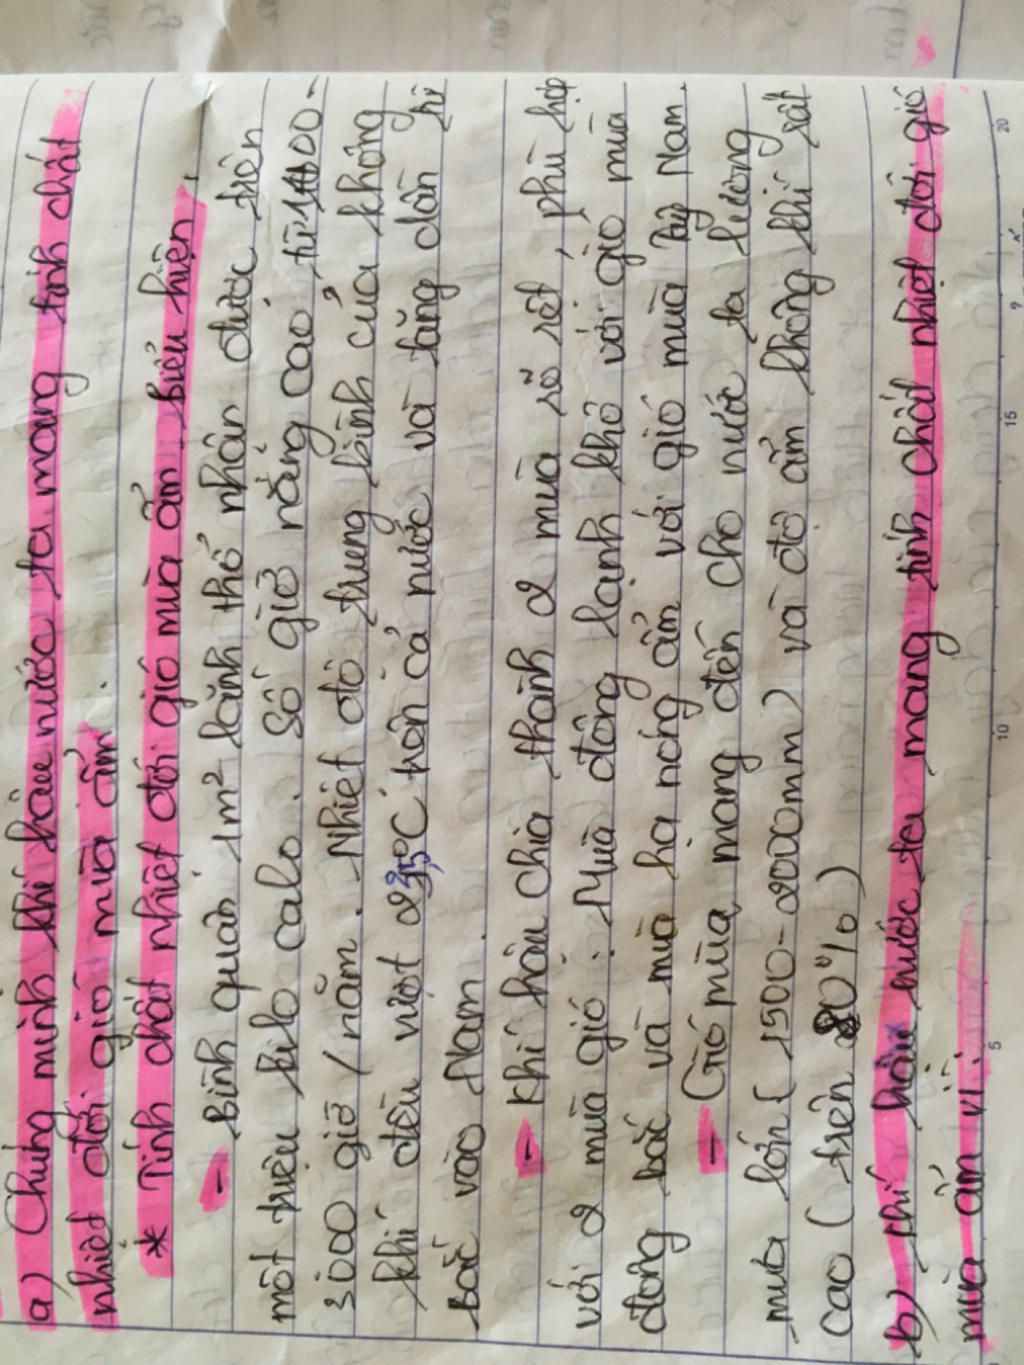 a) Chứng minh khí hậu nước ta mang tính chất
nhiệt đới gió mùa ẩm.
* Tính chất nhiệt đới gió mùa ẩm biểu hiện,
- Bình quân 1m² lãnh thổ nhận được trên
một triệu kilo calo. Số giờ nắng cao, từ 1400-
3000 giờ / năm. Nhiệt độ trung bình của không
khí đều vượt 25°C trên cả nước và tăng dần từ
Bắc vào Nam.
- Khí hậu chia thành 2 mùa rõ rệt, phù hợp
với 2 mùa gió: Mùa đông lạnh khô với gió mùa
đông bắc và mùa hạ nóng ẩm với gió mùa Tây Nam.
- Gió mùa mang đến cho nước ta lượng
mưa lớn (1500-2000mm) và độ ẩm không khí rất
cao (trên 80%)
b) khí hậu nước ta mang tính chất nhiệt đới gió
mùa ẩm vì:
5 10 15 20